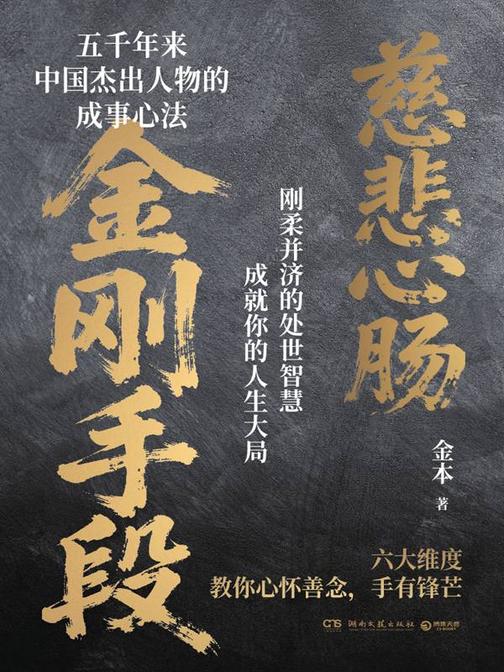 五千年来
中国杰出人物的
成事心法
慈悲心肠
金刚手段
刚柔并济的处世智慧
成就你的人生大局
金本 著
六大维度
教你心怀善念，手有锋芒
湖南文艺出版社
博集天卷
CS-BOOKY